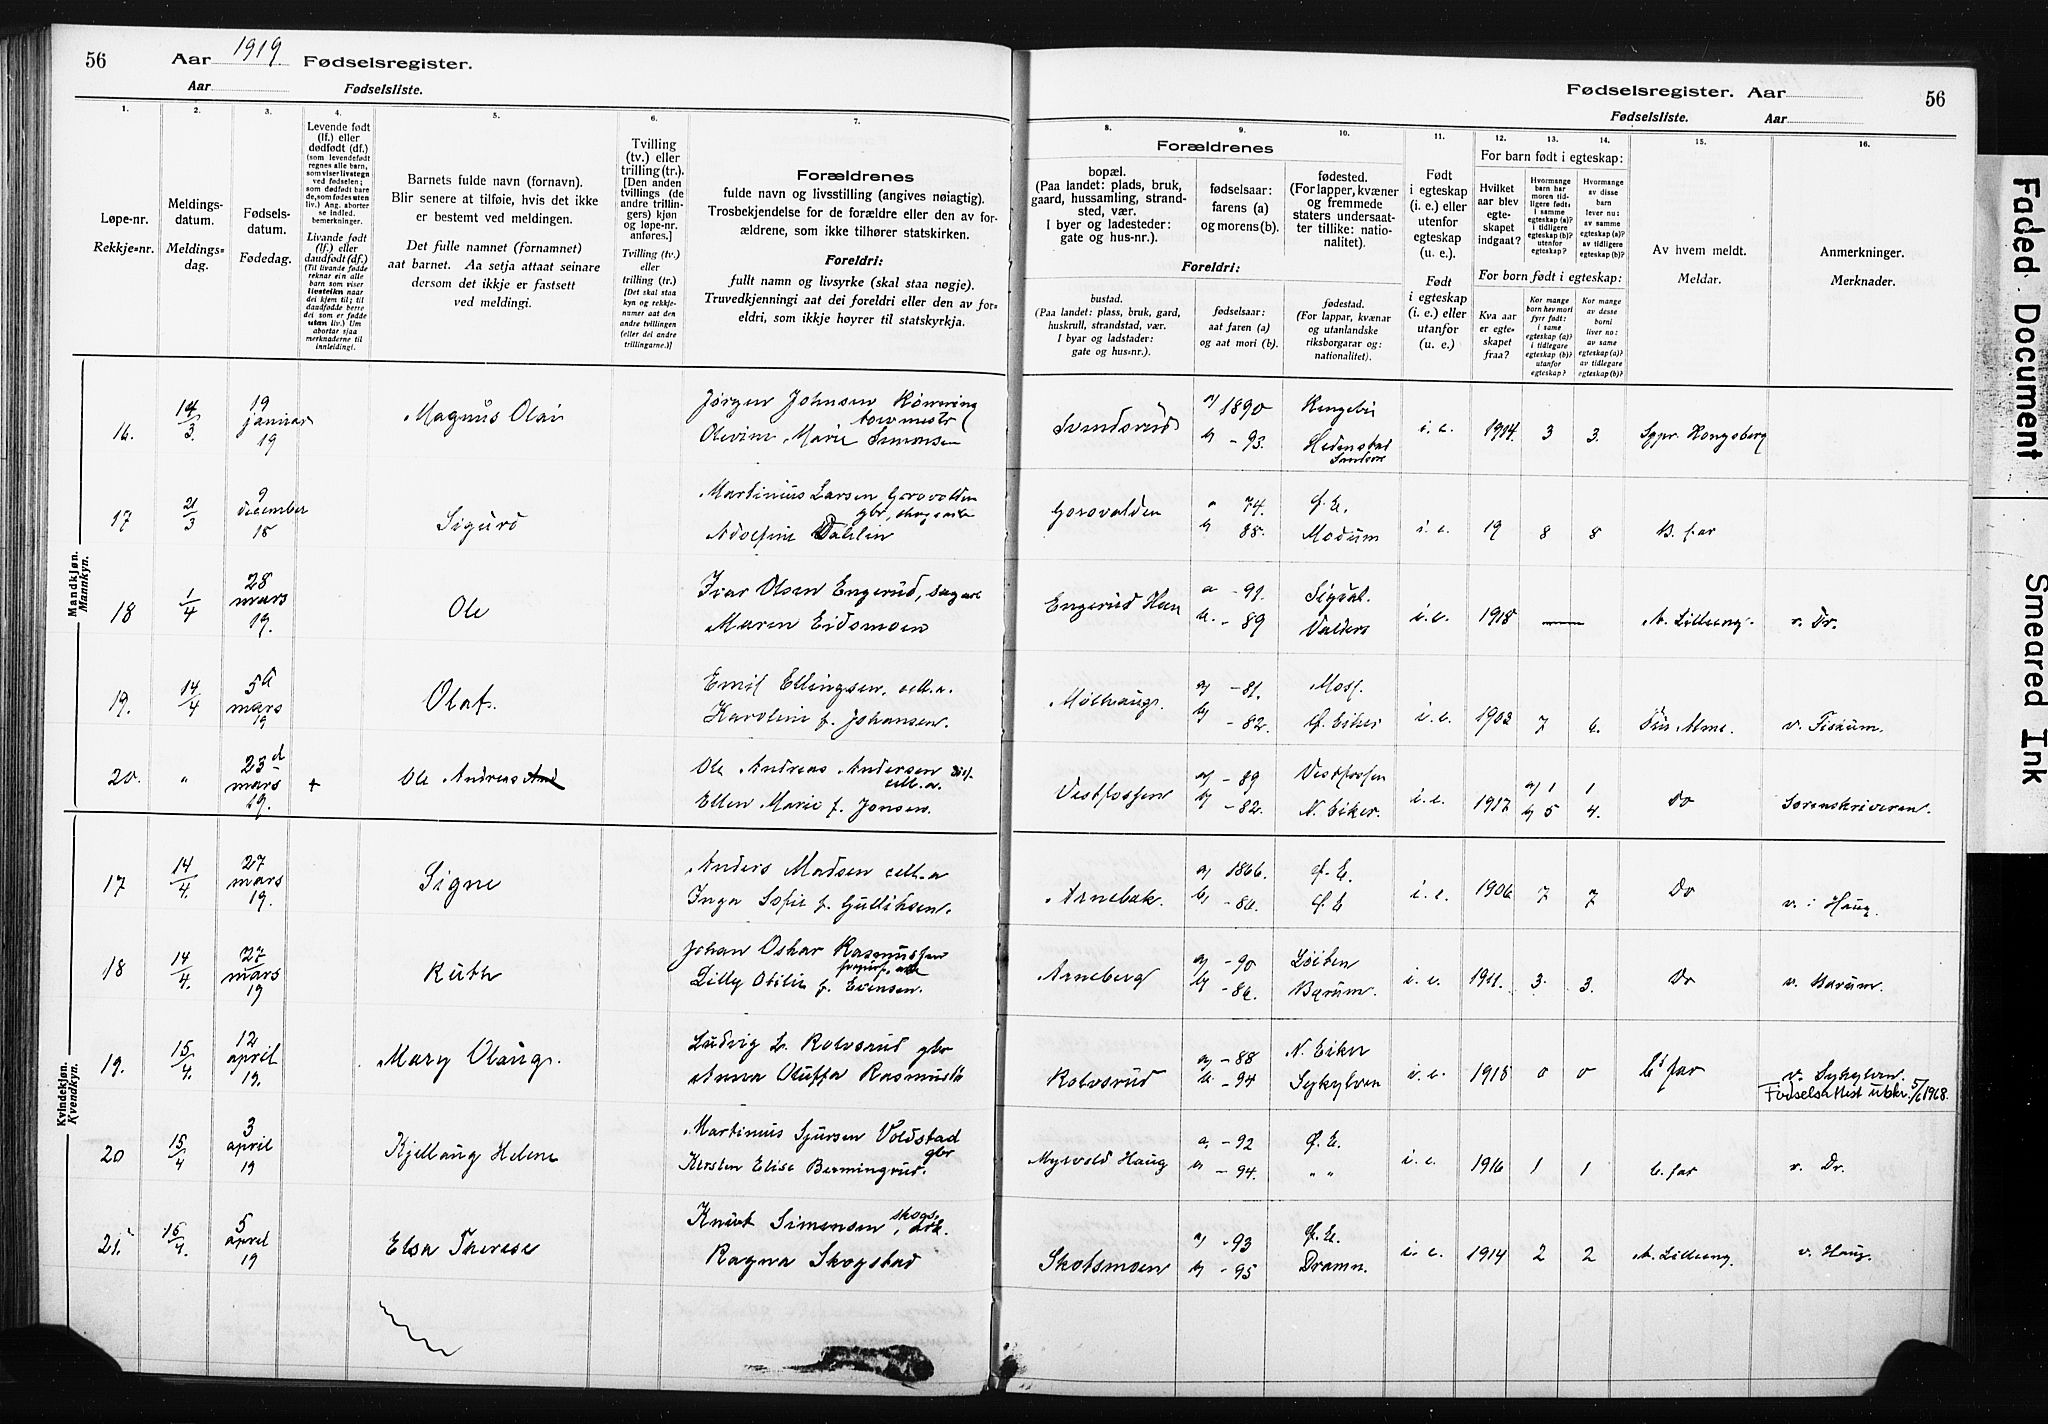 56
Aar 1919. Fødselsregister.
Aar Fødselsliste.
Fødselsregister. Aar
Fødselsliste. Aar
56
1.
Løpe-nr.
Rekkje-nr.
2.
Meldings-
datum.
Meldings-
dag.
3.
Fødsels-
datum.
Fødedag.
4.
Levende født
(lf.) eller
dødfødt (df.)
(som levendefødt
regnes alle barn,
som viser livstegn
ved fødselen;
som dødfødt bare
de, som fødes uten
liv.) Ang. aborter
se indled.
bemerkninger.
Livande født
(lf.) eller
daudfødt (df.)
(Til livande fødde
reknar ein alle
barn som viser
livsteikn naar
dei kjem til; til
daudfødde berre
dei som er fødde
utan liv.) Um
abortar sjaa
merknaderne til
innleiding!
5.
Barnets fulde navn (fornavn).
Blir senere at tilføie, hvis det ikke
er bestemt ved meldingen.
Det fulle namnet (fornamnet)
aat barnet. Aa setja attaat seinare
dersom det ikkje er fastsett
ved meldingi.
6.
Tvilling
(tv.) eller
trilling (tr.).
[Den anden
tvillings (de
andre trillin-
gers) kjøn
og løpe-nr.
anføres.]
Tvilling (tv.)
eller
trilling (tr.)
[Det skal staa
kyn og rekkje-
numer aat den
andre tvillingen
(eller dei andre
trillingarne.)]
7.
Forældrenes
fulde navn og livsstilling (angives nøiagtig).
Trosbekjendelse for de forældre eller den av for-
ældrene, som ikke tilhører statskirken.
Foreldri:
fullt namn og livsyrke (skal staa nøgje).
Truvedkjenningi aat dei foreldri eller den av for-
eldri, som ikkje høyrer til statskyrkja.
8.
Forældrenes
bopæl.
(Paa landet: plads, bruk,
gaard, hussamling, strand-
sted, vær.
I byer og ladesteder:
gate og hus-nr.).
Foreldri:
bustad.
(Paa landet: plass, bruk, gard,
huskrull, strandstad, vær.
I byar og ladstader:
gate og hus-nr.).
9.
fødselsaar:
farens (a)
og morens (b).
fødselsaar:
aat faren (a)
og aat mori (b).
10.
fødested.
(For lapper, kvæner
og fremmede
staters undersaat-
ter tillike: natio-
nalitet).
fødestad.
(For lappar, kvænar
og utanlandske
riksborgarar og:
nationalitet).
11.
Født
i egteskap
(i. e.) eller
utenfor
egteskap
(u. e.).
Født
i egteskap
(i. e.) eller
utanfor
(u. e.)
12. 13. 14.
For barn født i egteskap:
Hvilket
aar blev
egte-
skapet
indgaat?
Hvormange
barn har
moren tid-
ligere født:
i samme
egteskap (a)?
i tidligere
egteskap (b)?
utenfor
egteskap?
Hvormange
av disse
barn
lever nu:
av samme
egteskap (a)?
av tidligere
egteskap (b)?
For born født i egteskap:
Kva aar
er egte-
skapet
fraa?
Kor mange
born hev mori
fyrr født:
i same
egteskap (a)?
i tidlegare
egteskap (b)?
utanfor
egteskap?
Kor mange
av desse
borni
liver no:
av same
egteskap (a)?
av tidlegare
egteskap (b)?
15.
Av hvem meldt.
Meldar.
16.
Anmerkninger.
Merknader.
Mandkjøn.
Mannkyn.
16. 14/3. 19 januar 19 Magnus Olai Jørgen Johnsen
Olevine Marie Simonsen
Svendsrud a) 1890 b) - 93. Hedenstad Sandsvær i. e. 1914. 3 3. Sgpr. Kongsberg
17 21/3 9 december 18 Sigurd Martinius Larsen Gorovolden
Adolfine Dahlin
Gorovolden a 74. b) 88. Ø. E. Modum i. e. 19 8 8 B. far
18 1/4 28 mars 19. Ole Ivar Olsen Engerud, sagarb
Maren Eidsmoen
Engerud Haen a - 91. b. - 89 Sigdal. Valders i. e. 1918 — A. Lilleeng. v. Dr.
19. 14/4 5d mars 19 Olaf. Emil Ellingsen, cell. a.
Karoline f. Johansen.
Mølhaug. a) - 81. b) - 82. Moss. Ø. Eiker i. e. 1903 7 6. Frk Alme. v. Fiskum.
20. " 23d mars 19. + Ole Andreas And Ole Andreas Andersen cell. a.
Ellen Marie f. Jonsen.
Vestfossen a) - 89 b) - 82. Vestfossen N. Eiker. i. e. 1917 a) 1 b) 5 1 4. Do Sorenskriveren.
Kvindekjøn.
Kvendkyn.
17 14/4. 27 mars 19. Signe Anders Madsen cell. a
Inga Sofie f. Gulliksen.
Arnebæk. a) 1866. b) - 86. Ø. E. Ø. E i. e. 1906 7 7 Do v. i Haug.
18 14/4. 27 mars 19 Ruth Johan Oskar Rasmussen
Lilly Otilie f. Evensen.
Arneberg a) - 90 b) - 86. Løiten Bærum. i. e. 1911. 3. 3. Do v. Bærum.
19. 15/4. 12 april 19. Mary Olaug. Ludvig L. Kolvsrud gbr
Anna Oluffa Rasmusdt
Kolvsrud a) - 88 b. - 94 N. Eiker Sykylven i. e. 1918 0 0 B. far v. Sykylven.
Fødselsattest utskr. 5/6 1968.
20 15/4 3 april 19 Kjellaug Helene Martinius Sjursen Voldstad gbr
Kirsten Elise Bermingrud.
Myrvold Haug a. - 92 b - 94. Ø. E. " " i. e. 1916 1 1 B. far v. Dr.
21. 15/4. 5 april 19 Elsa Therese Knut Simensen, skogsarb.
Ragna Skogstad
Skotsmoen a) - 93 b) - 95 Ø. E. Dramn. i. e. 1914 2 2 A. Lilleeng. v. Haug.
Faded Document
Smeared Ink